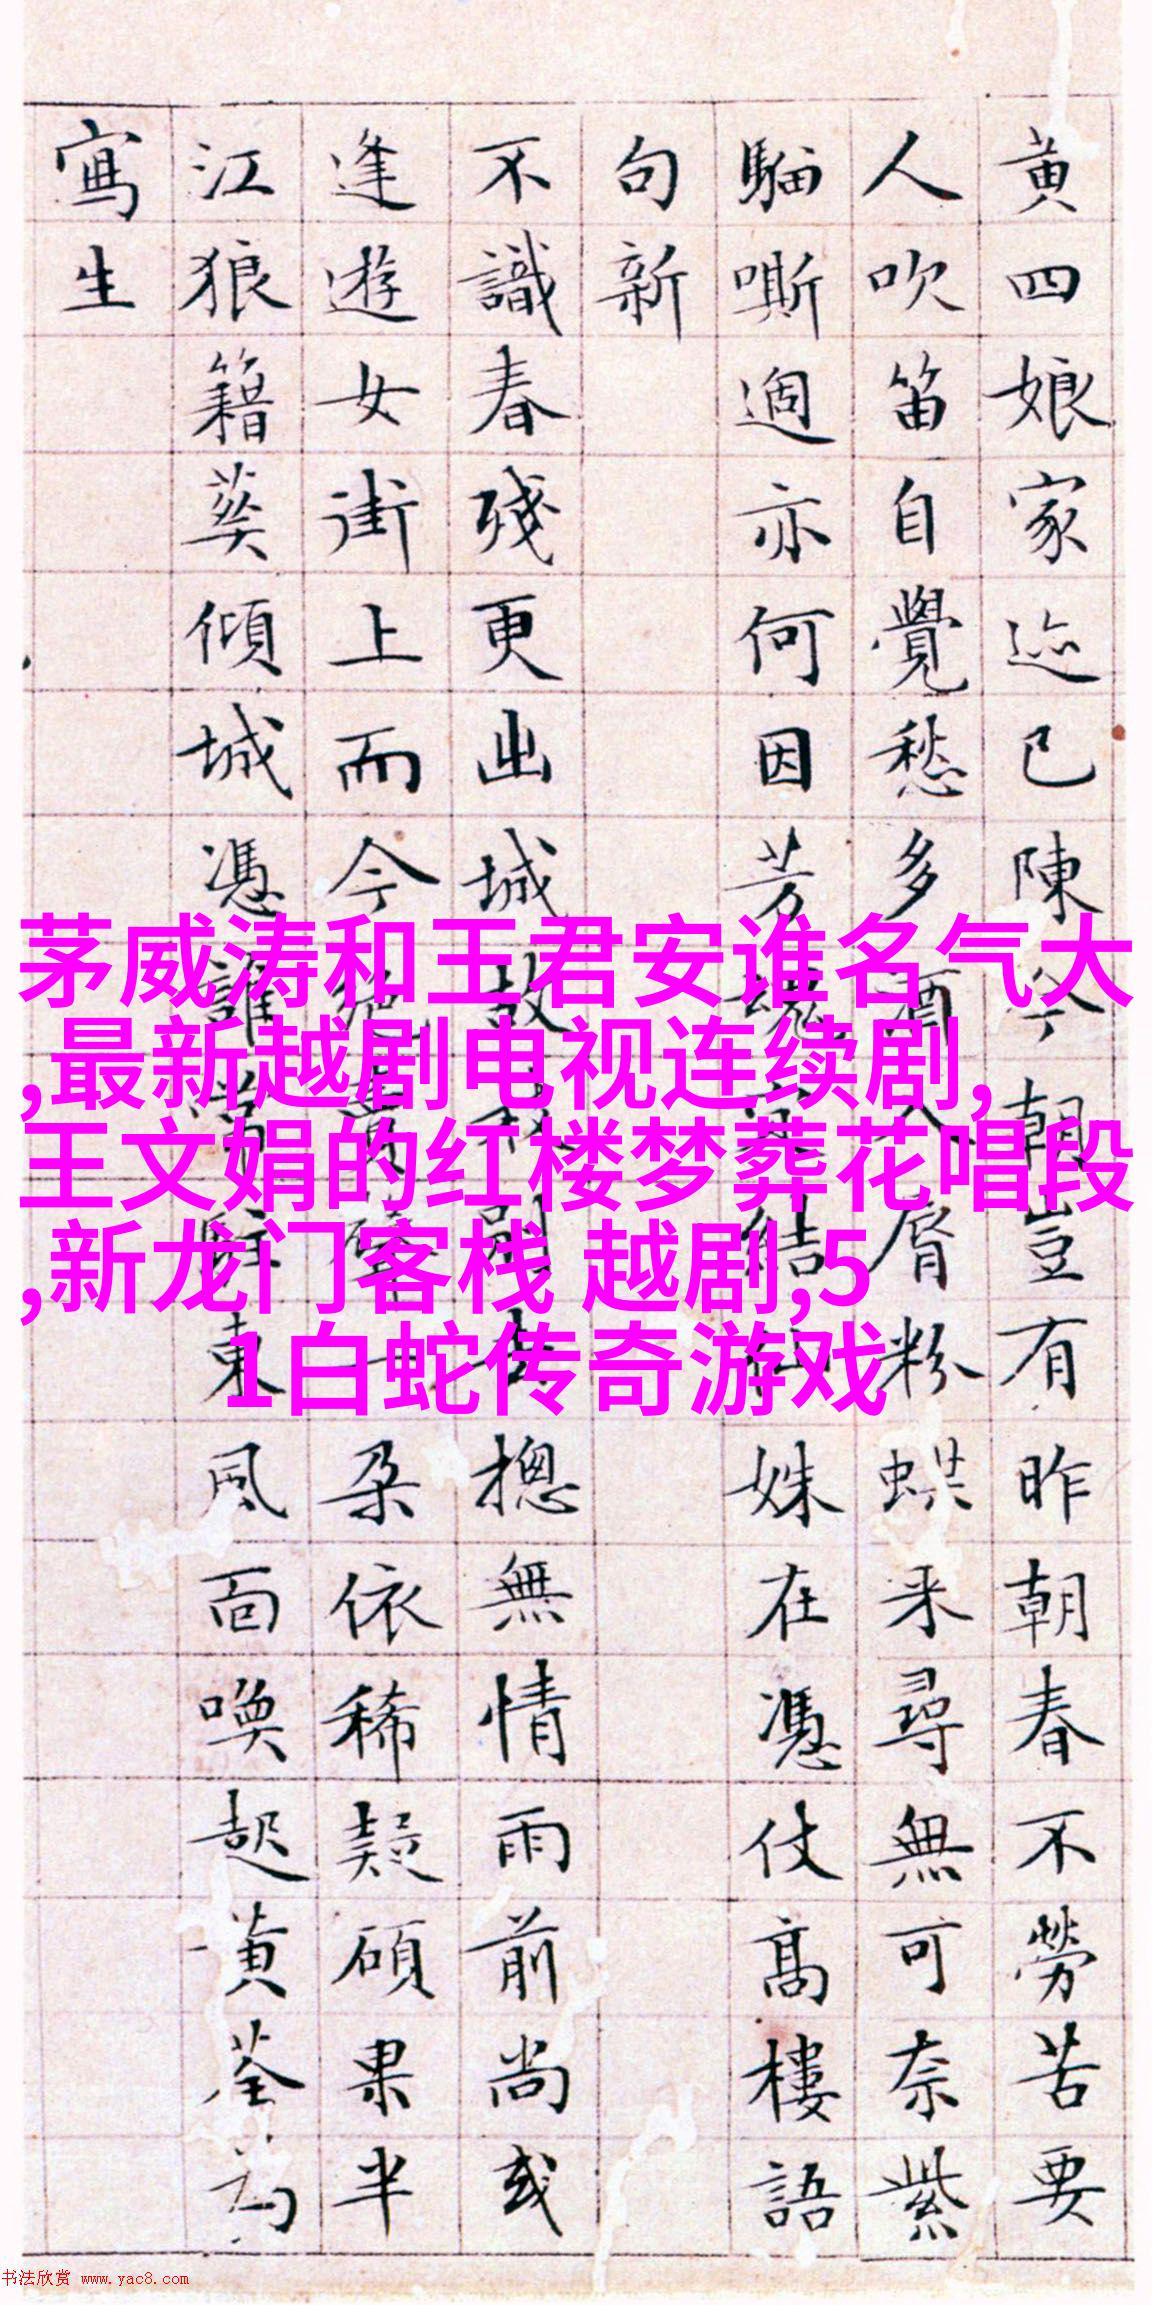 黄四娘家迹已陳今朝豈有昨朝春不勞苦要
人吹笛自覺愁多酒入脣粉蝶来尋無可奈紫
騮嘶過亦何因芳魂結姝在憑仗高樓語
句新
不識春殘更出城故別去摠無情雨前尚或
逢遊女街上而今絶賣聲一朵依稀疑碩果半
江狼籍葵傾城憑誰常駐東風面喚起黄荃為
寫生
茅威涛和王君安谁名气大
,最新越剧电视连续剧,
王文娟的红楼梦葬花唱段
,新龙门客栈 越剧,5
1白蛇传奇游戏
书法欣赏 www.yac8.com